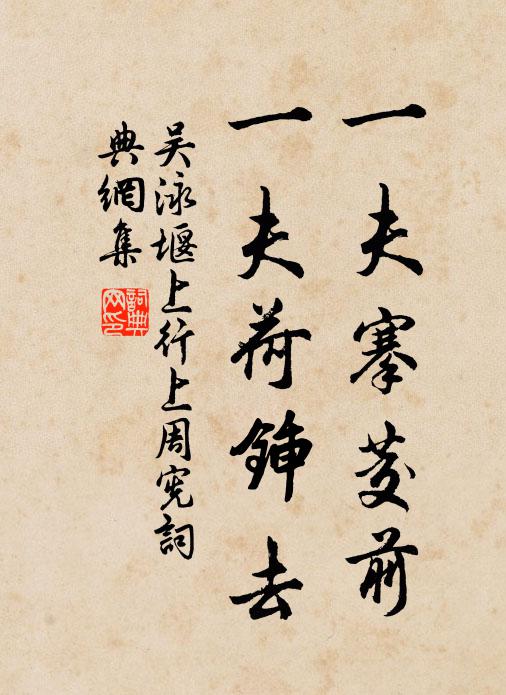 一夫搴茭前
一夫荷鍤去
吴泳堰上行上周宪詞
典網集
詞典
网印